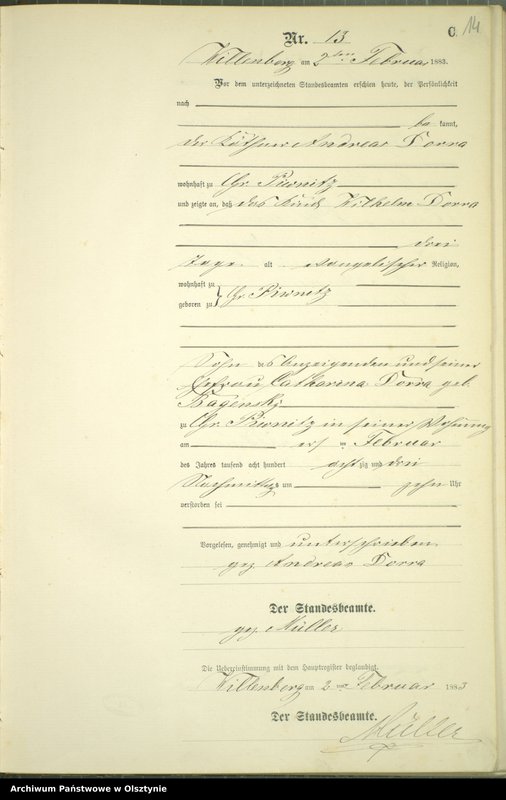 C. 14
Nr. 13
Willenberg am 2ten Februar 1883.
Vor dem unterzeichneten Standesbeamten erschien heute, der Persönlichkeit
nach
be kannt,
der Käthner Andreas Dorra
wohnhaft zu Gr. Piwnitz
und zeigte an, daß das Kind Wilhelm Dorra
drei
Tage alt evangelischer Religion,
wohnhaft zu
geboren zu Gr. Piwnitz
Sohn des Anzeigenden und seiner
Ehefrau Catharina Dorra geb.
Bagensky
zu Gr. Piwnitz in seiner Wohnung
am ersten Februar
des Jahres tausend acht hundert achtzig und drei
Nachmittags um zehn Uhr
verstorben sei
Vorgelesen, genehmigt und unterschrieben
gez. Andreas Dorra
Der Standesbeamte.
gez. Müller
Die Uebereinstimmung mit dem Hauptregister beglaubigt.
Willenberg am 2ten Februar 1883
Der Standesbeamte.
Müller
Archiwum Państwowe w Olsztynie